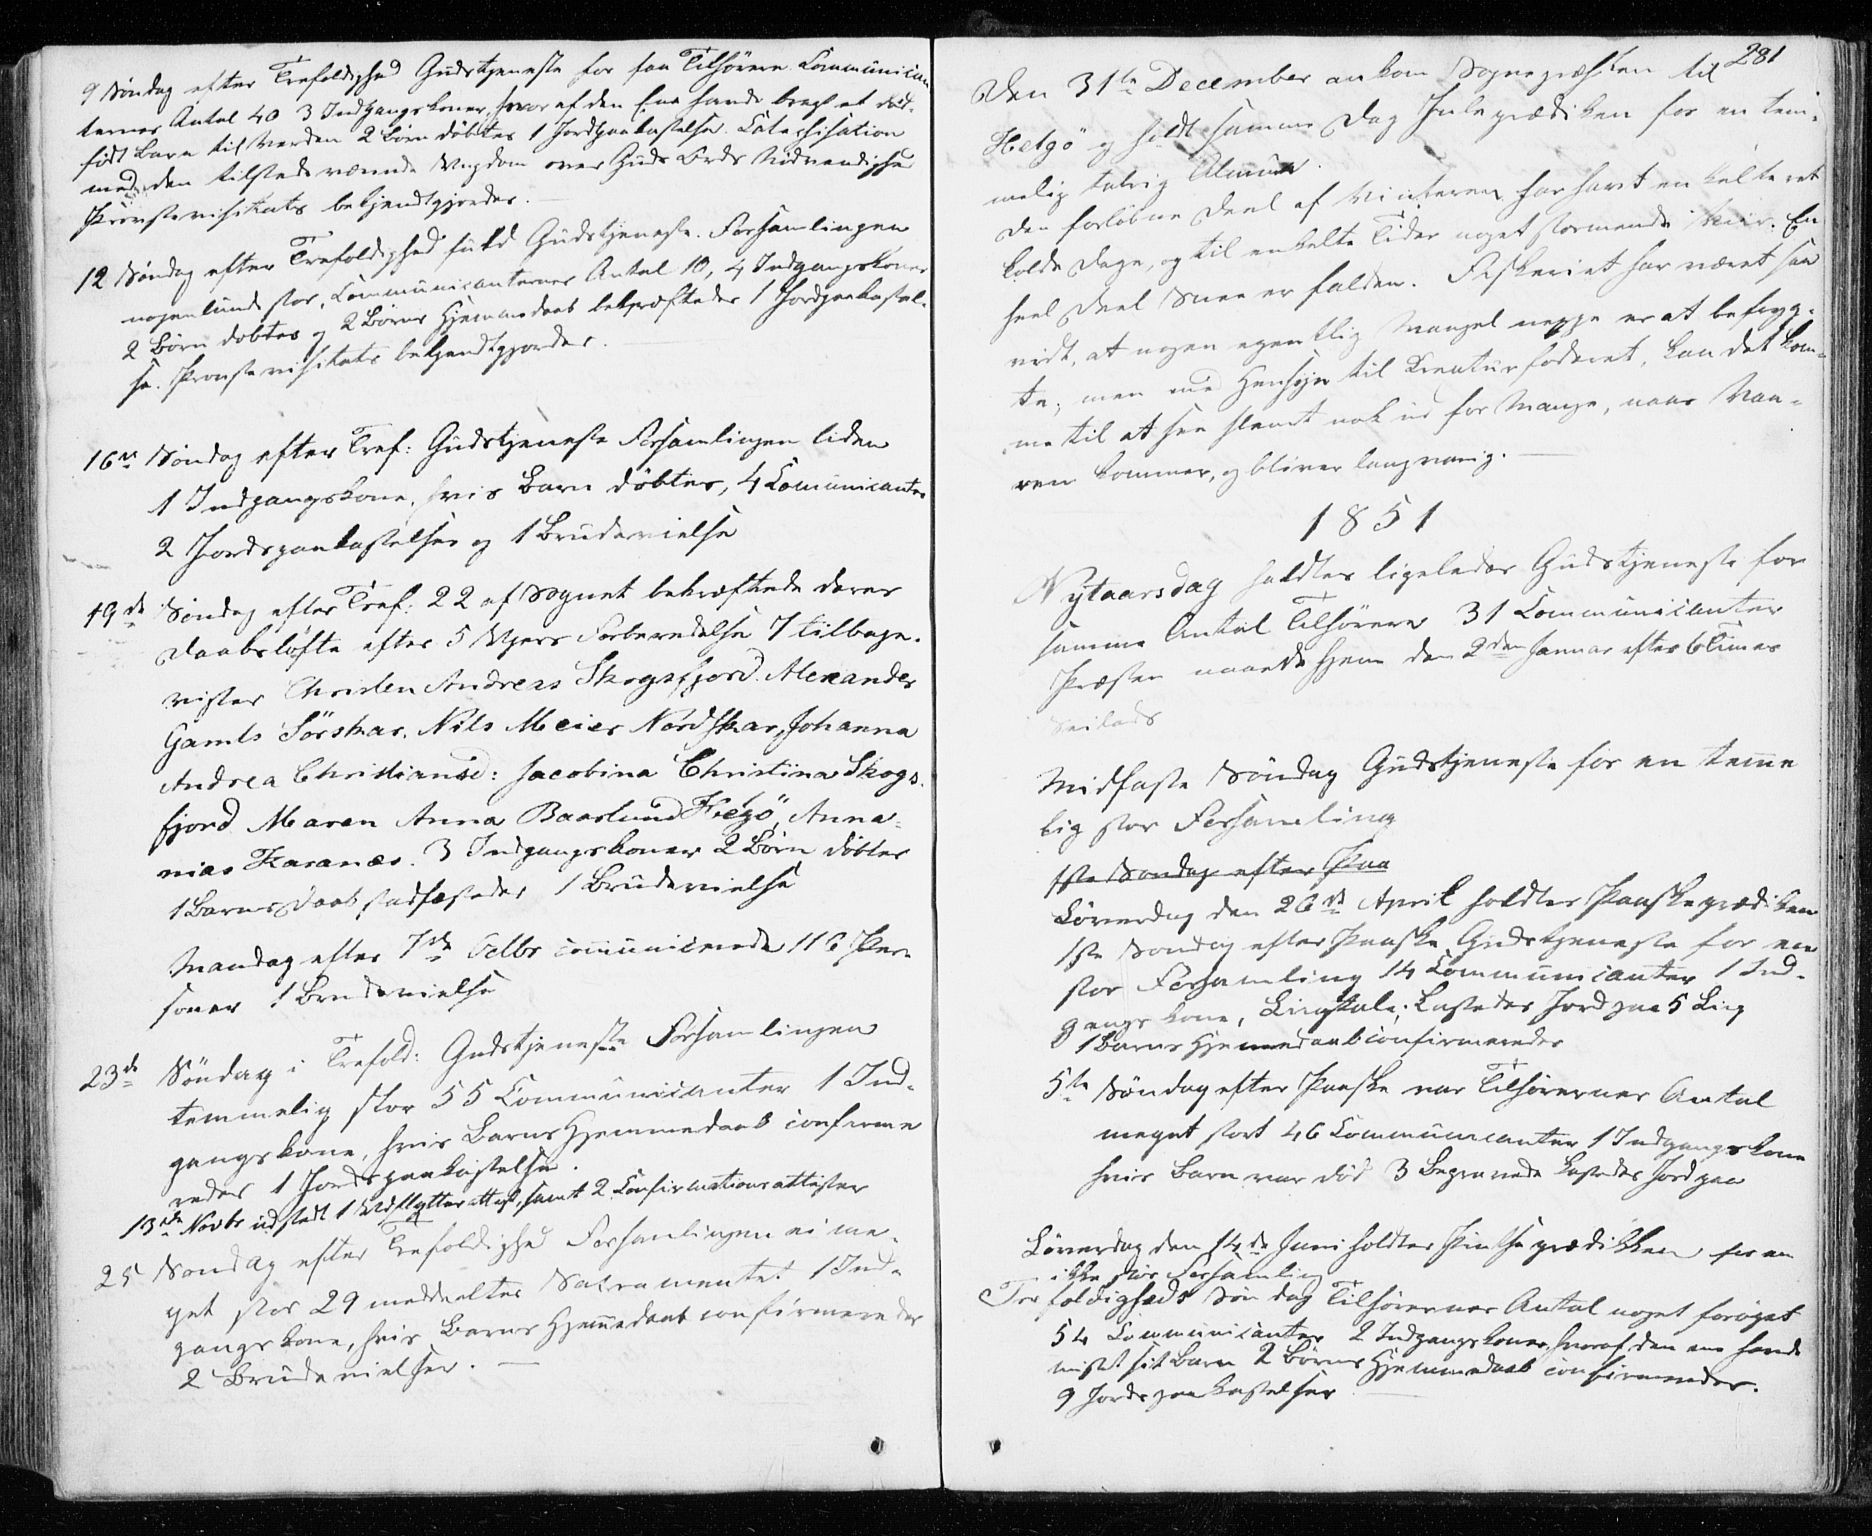 9 Søndag efter Trefoldighed Gudstjeneste for faa Tilhørere Communican
ternes Antal 40 3 Indgangskoner, hvoraf den Ene havde bragt et død-
født Barn til Verden 2 Børn døbtes 1 Jordpaakastelse. Catechisation
med den tilstedeværende Ungdom over Guds Ords Nødvendighed
Provstevisitats bekjendtgjordes.
12 Søndag efter Trefoldighed fuld Gudstjeneste. Forsamlingen
nogenlunde stor, Communicanternes Antal 10, 4 Indgangskoner
2 Børn døbtes og 2 Børns Hjemmedaab bekræftedes 1 Jordpaakastel-
se. Provstevisitats bekjendtgjordes.
16de Søndag efter Tref: Gudstjeneste Forsamlingen liden
1 Indgangskone, hvis Barn døbtes, 4 Comunicanter
2 Jordspaakastelser og 1 Brudevielse
19de Søndag efter Tref: 22 af Sognet bekræftede deres
Daabsløfte efter 5 Ugers Forberedelse 7 tilbage-
vistes Christen Andreas Skogsfjord. Alexander
Gamls Sörskar. Nils Meier Nordskar, Johanna
Andrea Christiansd: Jacobina Christina Skogs-
fjord Maren Anna Baarlund Helgö, Anna-
nias Karanæs. 3 Indgangskoner 2 Børn døbtes
1 Barns Daab stadfæstedes 1 Brudevielse
Mandag efter 7de Octbr communicerede 116 Per-
soner 1 Brudevielse
23de Søndag i Trefold: Gudstjeneste Forsamlingen
temmelig stor 55 Communicanter 1 Ind-
gangskone, hvis Barns Hjemmedaab confirme
redes 1 Jordspaakastelse.
13de Novbr udstedt 1 Udflytterattest, samt 2 Confirmationsattester
25 Søndag efter Trefoldighed Forsamlingen ei me-
get stor 29 meddeeltes Sacramentet 1 Ind-
gangskone, hvis Barns Hjemmedaab confirmeredes
2 Brudevielser.
281
Den 31te December ankom Sognepræsten til
Helgö og holdt samme Dag Juleprædiken for en tem-
melig talrig Almue.
Den forløbne Deel af Vinteren har havt en Deel
kolde Dage, og til enkelte Tider noget stormende Veir. En
heel Deel Snee er falden. Fiskeriet har været saa
vidt, at nogen egentlig Mangel neppe er at befryg-
te; men med Hensyn til Kreaturfoderet, kan det kom-
me til at see slemt nok ud for Mange, naar Vaa-
ren kommer, og bliver langvarig.
1851
Nytaarsdag holdtes ligeledes Gudstjeneste for
samme Antal Tilhørere 31 Communicanter
Præsten naaede Hjem den 2den Januar efter 6 Timers
Seilads
Midfaste Søndag Gudstjeneste for en temme
lig stor Forsamling
1ste Søndag efter Paa
Løverdag den 26de April holdtes Paaskeprædiken
1ste Søndag efter Paaske Gudstjeneste for en
stor Forsamling 14 Communicanter 1 Ind-
gangskone, Liigtale; kastedes Jord paa 5 Liig
1 Barns Hjemmedaab confirmeredes
5te Søndag efter Paaske var Tilhørernes Antal
meget stort 46 Communicanter 1 Indgangskone
hvis Barn var død 3 Begravede kastedes Jord paa
Løverdag den 14de Juni holdtes Pintseprædikken for en
ikke stor Forsamling
Trefoldigheds Søndag Tilhørernes Antal noget forøget
54 Communicanter 2 Indgangskoner, hvoraf den ene havde
mistet sit Barn 2 Børns Hjemmedaab confirmeredes.
9 Jordspaakastelser